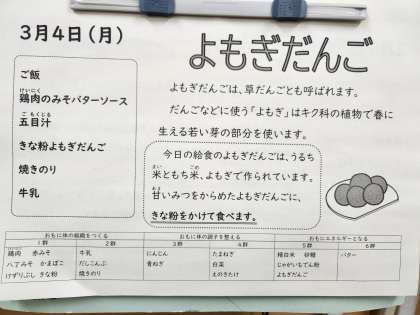 3月4日(月)
よもぎだんご
ご飯
鶏肉のみそバターソース
けいにく
五目汁
ごもくじる
きな粉よもぎだんご
焼きのり
牛乳
よもぎだんごは、草だんごとも呼ばれます。
だんごなどに使う「よもぎ」はキク科の植物で春に
生える若い芽の部分を使います。
今日の給食のよもぎだんごは、うるち
米ともち米、よもぎで作られています。
まい ごめ
甘いみつをからめたよもぎだんごに、
あま
きな粉をかけて食べます。
おもに体の組織をつくる おもに体の調子を整える おもにエネルギーとなる
1群 2群 3群 4群 5群 6群
鶏肉 赤みそ 牛乳 にんじん たまねぎ 精白米 砂糖 バター
八丁みそ かまぼこ だしこんぶ 青ねぎ 白菜 じゃがいもでん粉
けずりぶし きな粉 焼きのり えのきたけ よもぎだんご